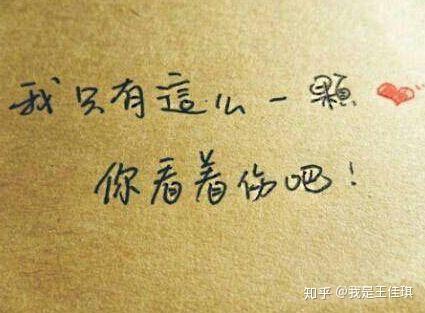 我只有這么一顆❤
你看着伤吧!
知乎 @我是王佳琪